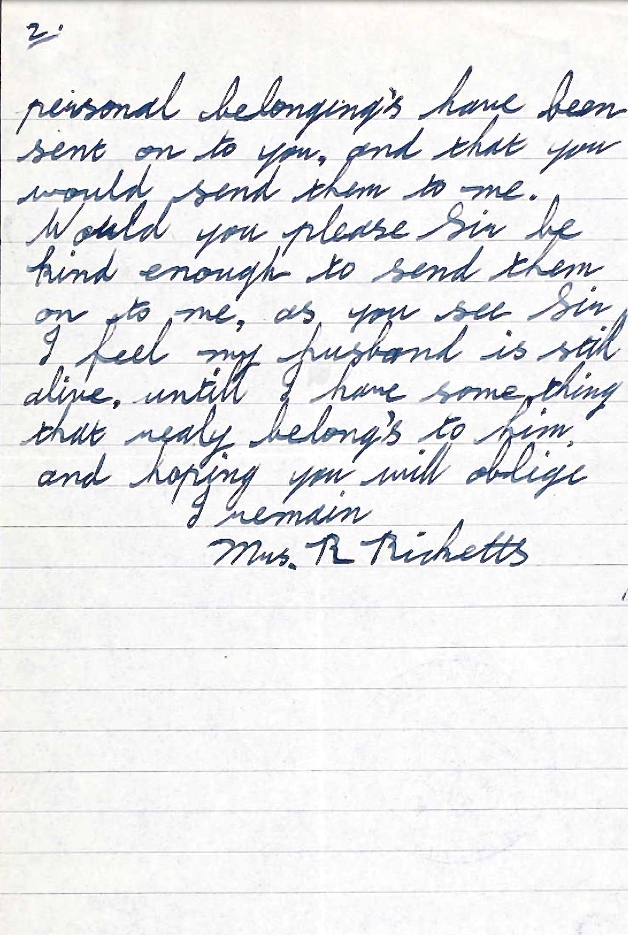 2.
personal belonging's have been
sent on to you, and that you
would send them to me.
Would you please Sir be
kind enough to send them
on to me, as you see Sir,
I feel my husband is still
alive, untill I have some thing
that realy belong's to him,
and hoping you will oblige
I remain
Mrs. R Ricketts